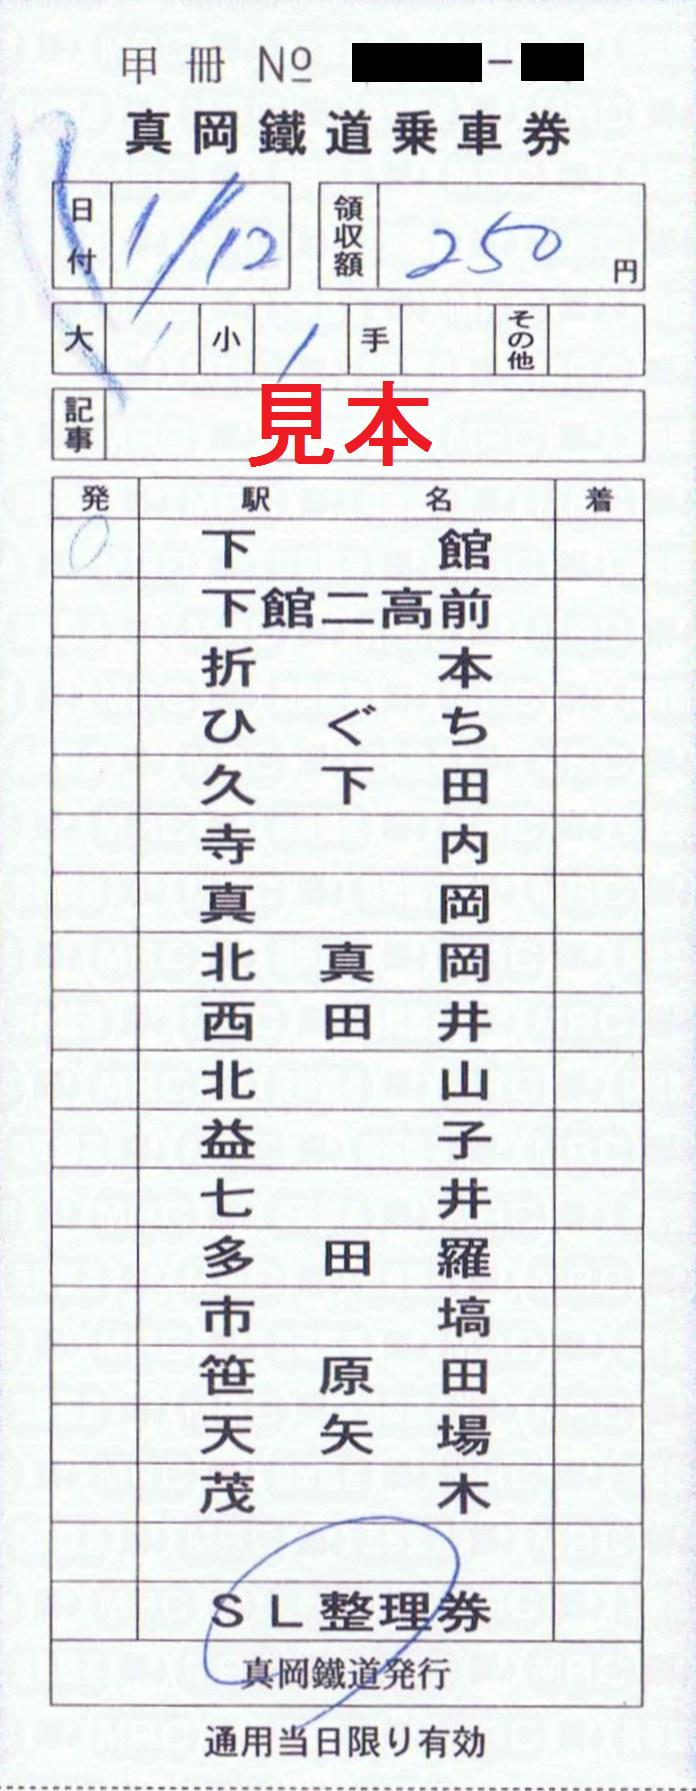 甲 冊 № -
真岡鐵道乗車券
日付 1/12 領収額 250 円
大 小 1 手 その他
記事
見本
発 駅名 着
下館
下館二高前
折本
ひぐち
久下田
寺内
真岡
北真岡
西田井
北山
益子
七井
多田羅
市塙
笹原田
天矢場
茂木
SL整理券
真岡鐵道発行
通用当日限り有効